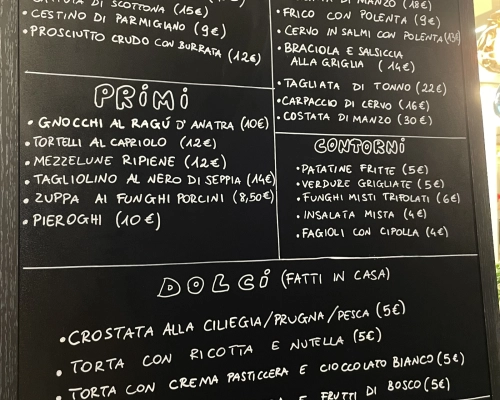 DI SCOTTONA (15€)
• CESTINO DI PARMIGIANO (9€)
• PROSCIUTTO CRUDO CON BURRATA (12€)
PRIMI
• GNOCCHI AL RAGÚ D'ANATRA (10€)
• TORTELLI AL CAPRIOLO (12€)
• MEZZELUNE RIPIENE (12€)
• TAGLIOLINO AL NERO DI SEPPIA (14€)
• ZUPPA AI FUNGHI PORCINI (8,50€)
• PIEROGHI (10€)
DI MANZO (18€)
• FRICO CON POLENTA (9€)
• CERVO IN SALMI CON POLENTA
• BRACIOLA E SALSICCIA
ALLA GRIGLIA (14€)
• TAGLIATA DI TONNO (22€)
• CARPACCIO DI CERVO (16€)
• COSTATA DI MANZO (30€)
CONTORNI
• PATATINE FRITTE (5€)
• VERDURE GRIGLIATE (5€)
• FUNGHI MISTI TRIFOLATI (6€)
• INSALATA MISTA (4€)
• FAGIOLI CON CIPOLLA (4€)
DOLCI (FATTI IN CASA)
• CROSTATA ALLA CILIEGIA/PRUGNA/PESCA (5€)
• TORTA CON RICOTTA E NUTELLA (5€)
• TORTA CON CREMA PASTICCERA E CIOCCOLATO BIANCO (5€)
E FRUTTI DI BOSCO (5€)